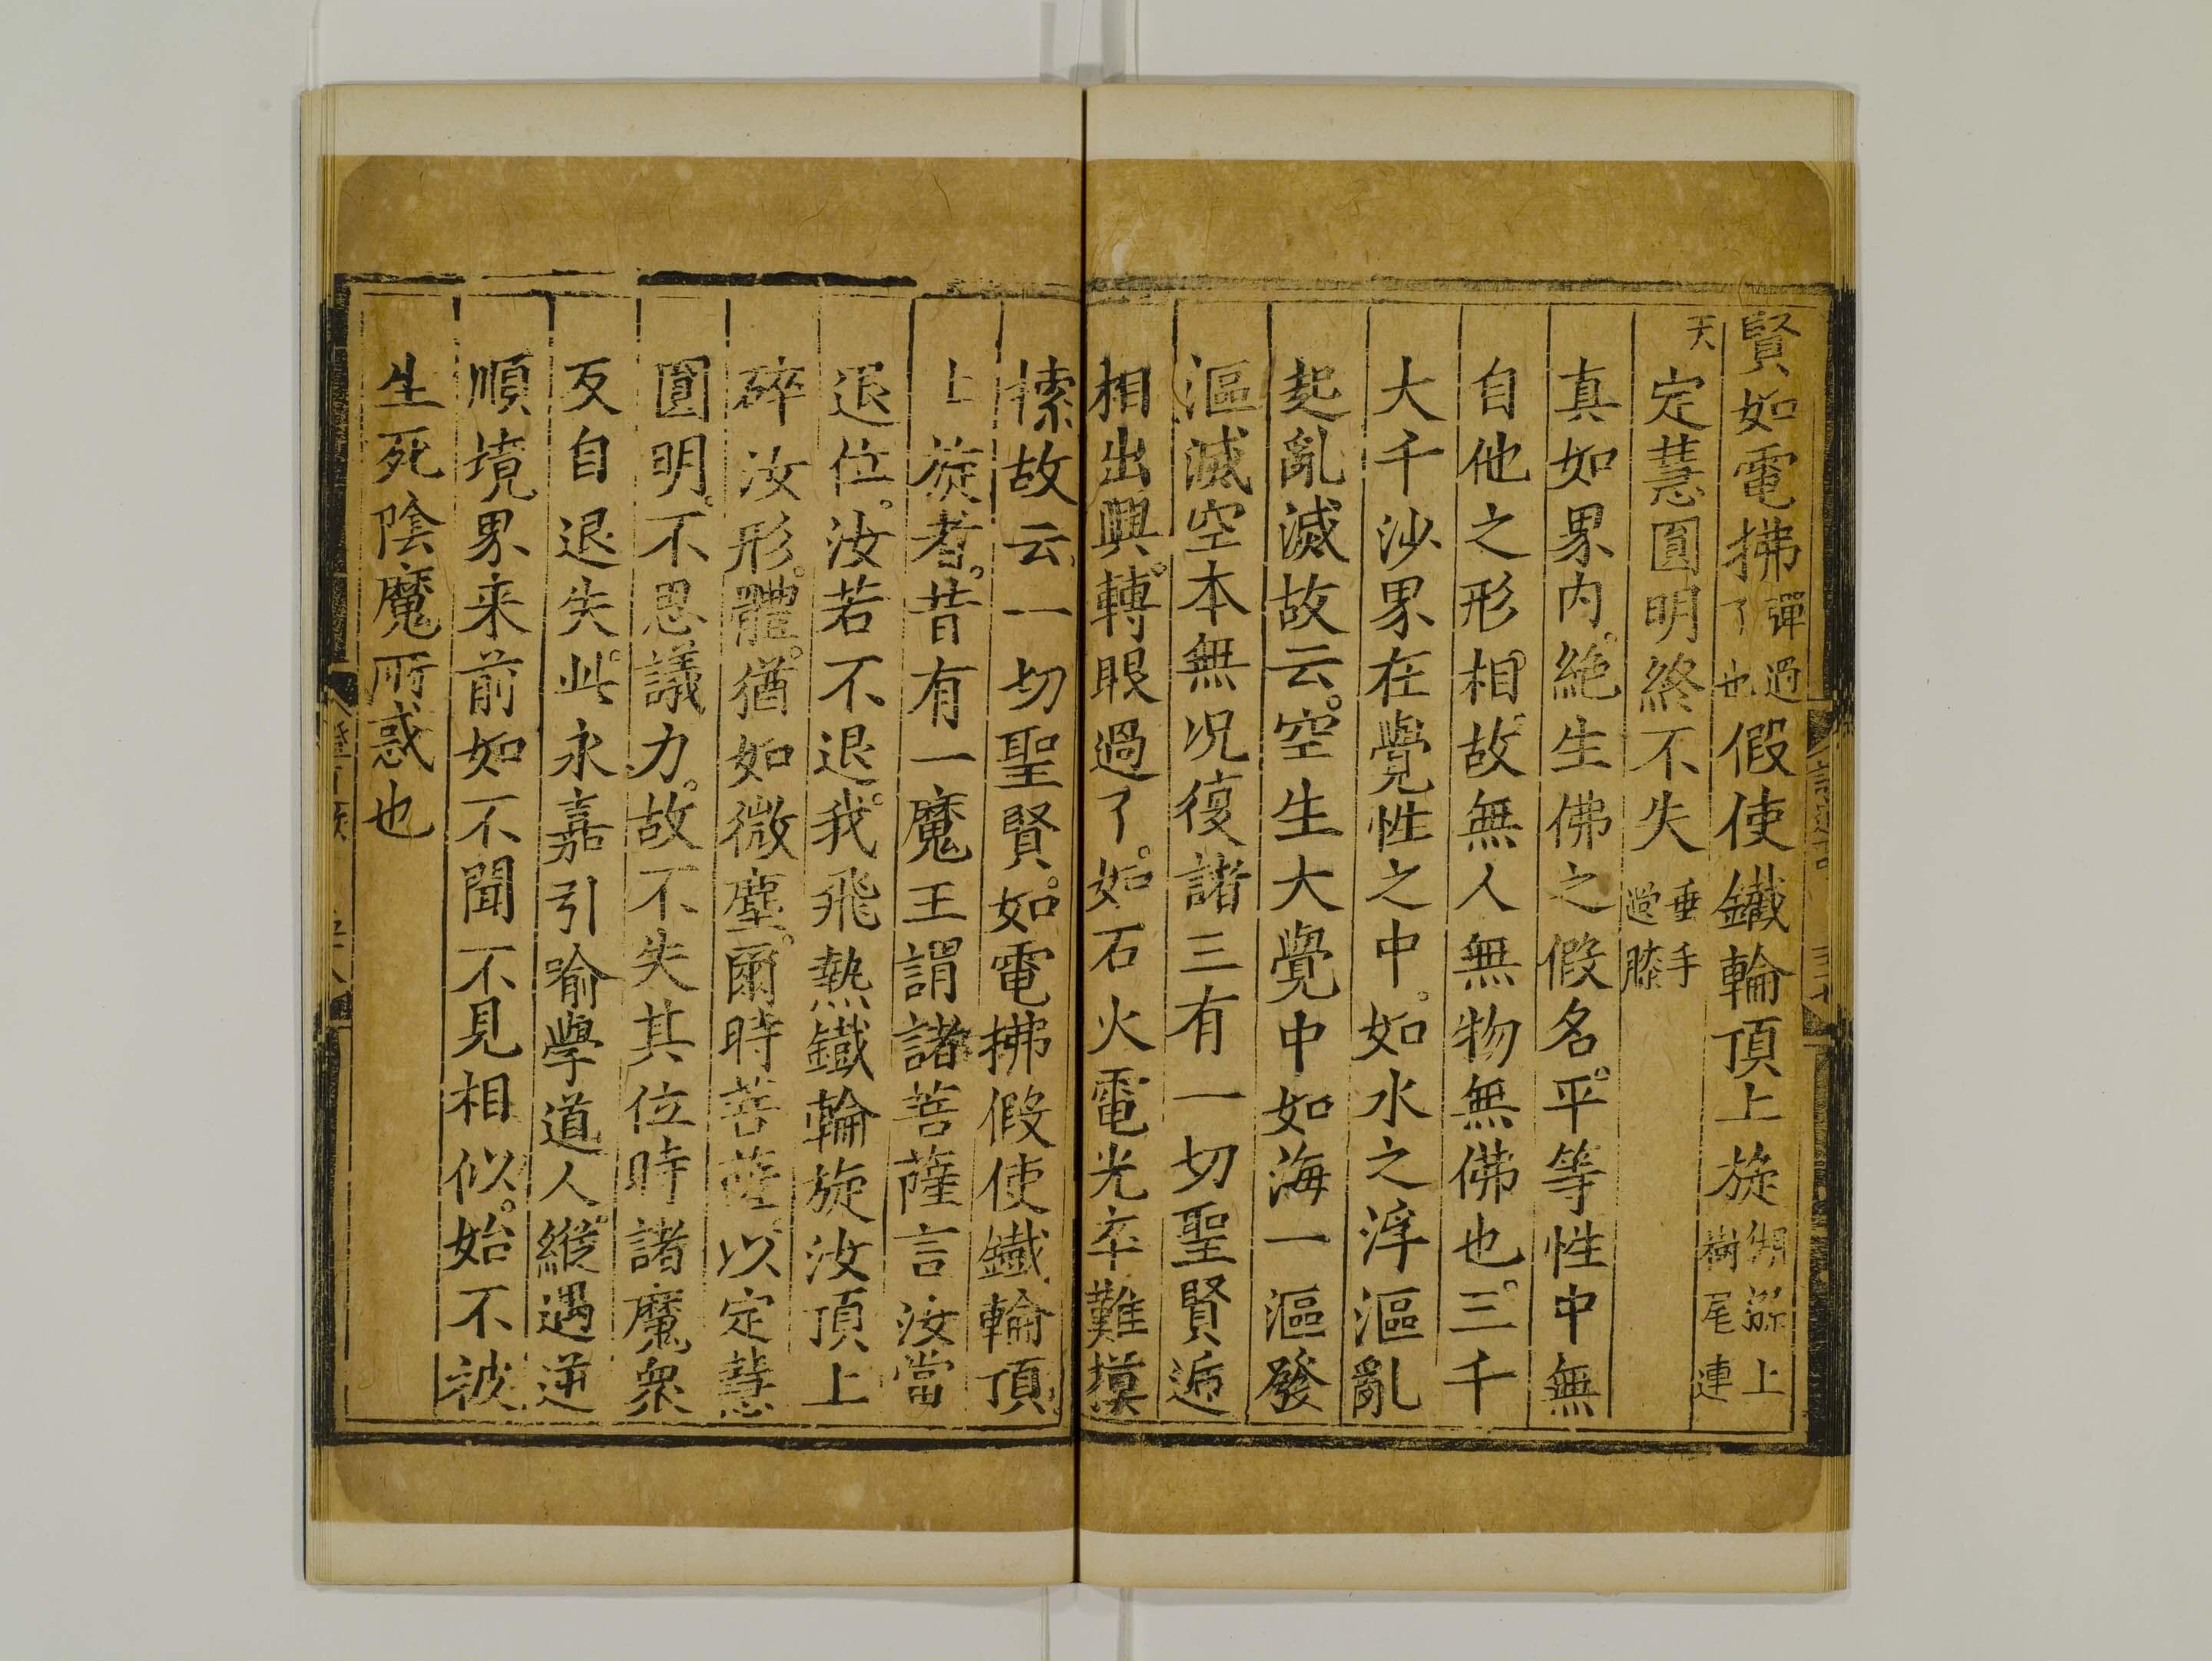 賢如電拂彈過了也假使鐵輪頂上旋上樹尾連
天定慧圓明終不失垂手過膝
真如界內絶生佛之假名平等性中無
自他之形相故無人無物無佛也三千
大千沙界在覺性之中如水之浮漚亂
起亂滅故云空生大覺中如海一漚發
漚滅空本無况復諸三有一切聖賢逓
相出興轉眼過了如石火電光卒難摸
㨞故云一切聖賢如電拂假使鐵輪頂
上旋者昔有一魔王謂諸菩薩言汝當
退位汝若不退我飛熱鐵輪旋汝頂上
碎汝形體猶如微塵爾時菩薩以定慧
圓明不思議力故不失其位時諸魔衆
反自退失此永嘉引喻學道人縱遇逆
順境界来前如不聞不見相似始不被
生死陰魔所惑也